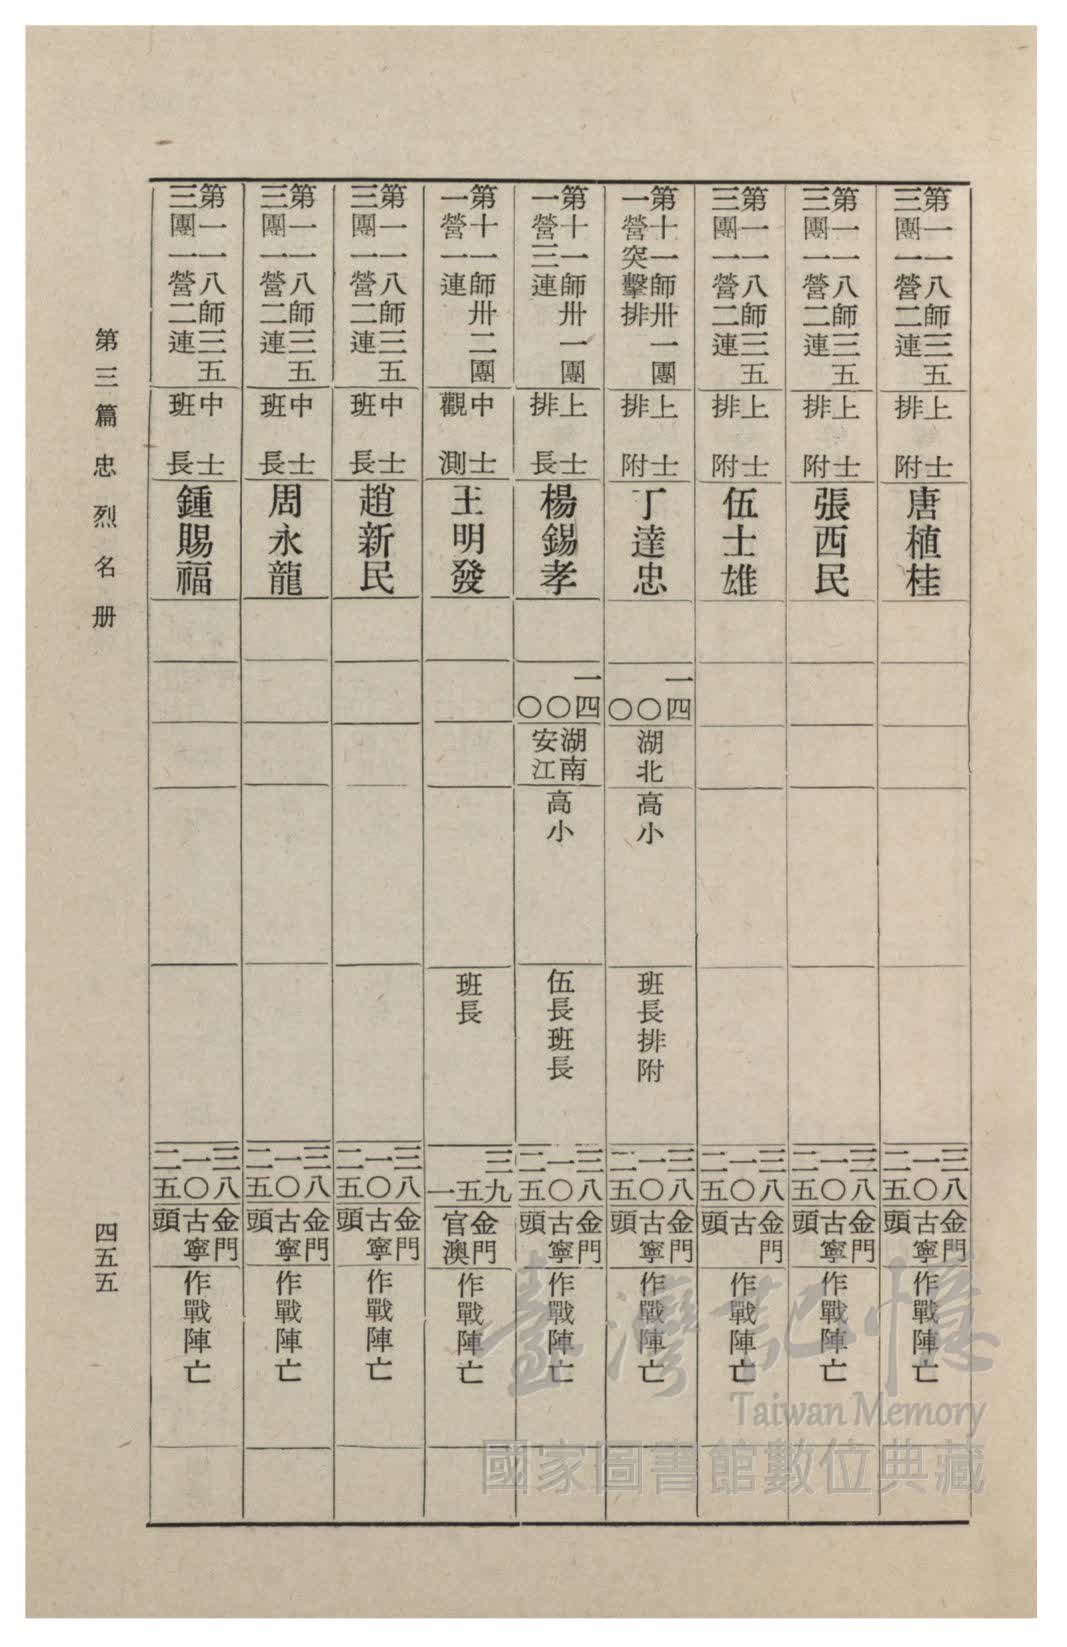 第一一八師三五
三團一營二連
上士
排附
唐植桂
三八
一〇
二五
金門
古寧
頭
作戰陣亡
第一一八師三五
三團一營二連
上士
排附
張西民
三八
一〇
二五
金門
古寧
頭
作戰陣亡
第一一八師三五
三團一營二連
上士
排附
伍士雄
三八
一〇
二五
金門
古
頭
作戰陣亡
第十一師卅一團
一營突擊排
上士
排附
丁達忠
一四
〇
〇
湖北
高小
班長排附
三八
一〇
二五
金門
古寧
頭
作戰陣亡
第十一師卅一團
一營三連
上士
排長
楊錫孝
一四
〇
〇
湖南
安江
高小
伍長班長
三八
一〇
二五
金門
古寧
頭
作戰陣亡
第十一師卅二團
一營一連
中士
觀測
王明發
班長
三九
五
一
金門
官澳
作戰陣亡
第一一八師三五
三團一營二連
中士
班長
趙新民
三八
一〇
二五
金門
古寧
頭
作戰陣亡
第一一八師三五
三團一營二連
中士
班長
周永龍
三八
一〇
二五
金門
古寧
頭
作戰陣亡
第一一八師三五
三團一營二連
中士
班長
鍾賜福
三八
一〇
二五
金門
古寧
頭
作戰陣亡
第三篇 忠烈名册
四五五
臺灣記憶
Taiwan Memory
國家圖書館數位典藏